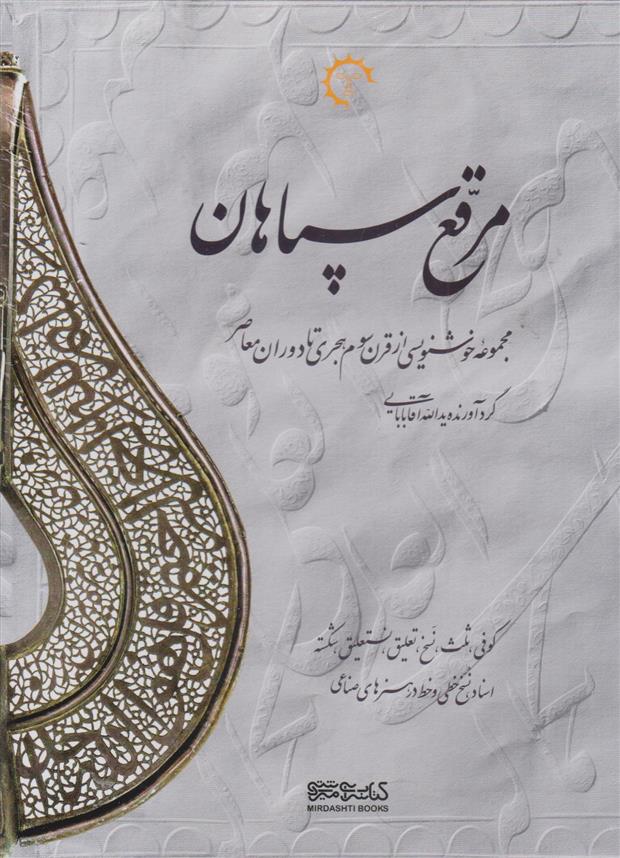 مرقّع سپاهان
مجموعه خوشنویسی از قرن سوم هجری تا دوران معاصر
گردآورنده یدالله آقابابایی
کوفی، ثلث، نسخ، تعلیق، نستعلیق، شکسته
اسناد، نسخ خطی و خط در هنرهای صناعی
کتابسرای میردشتی
MIRDASHTI BOOKS